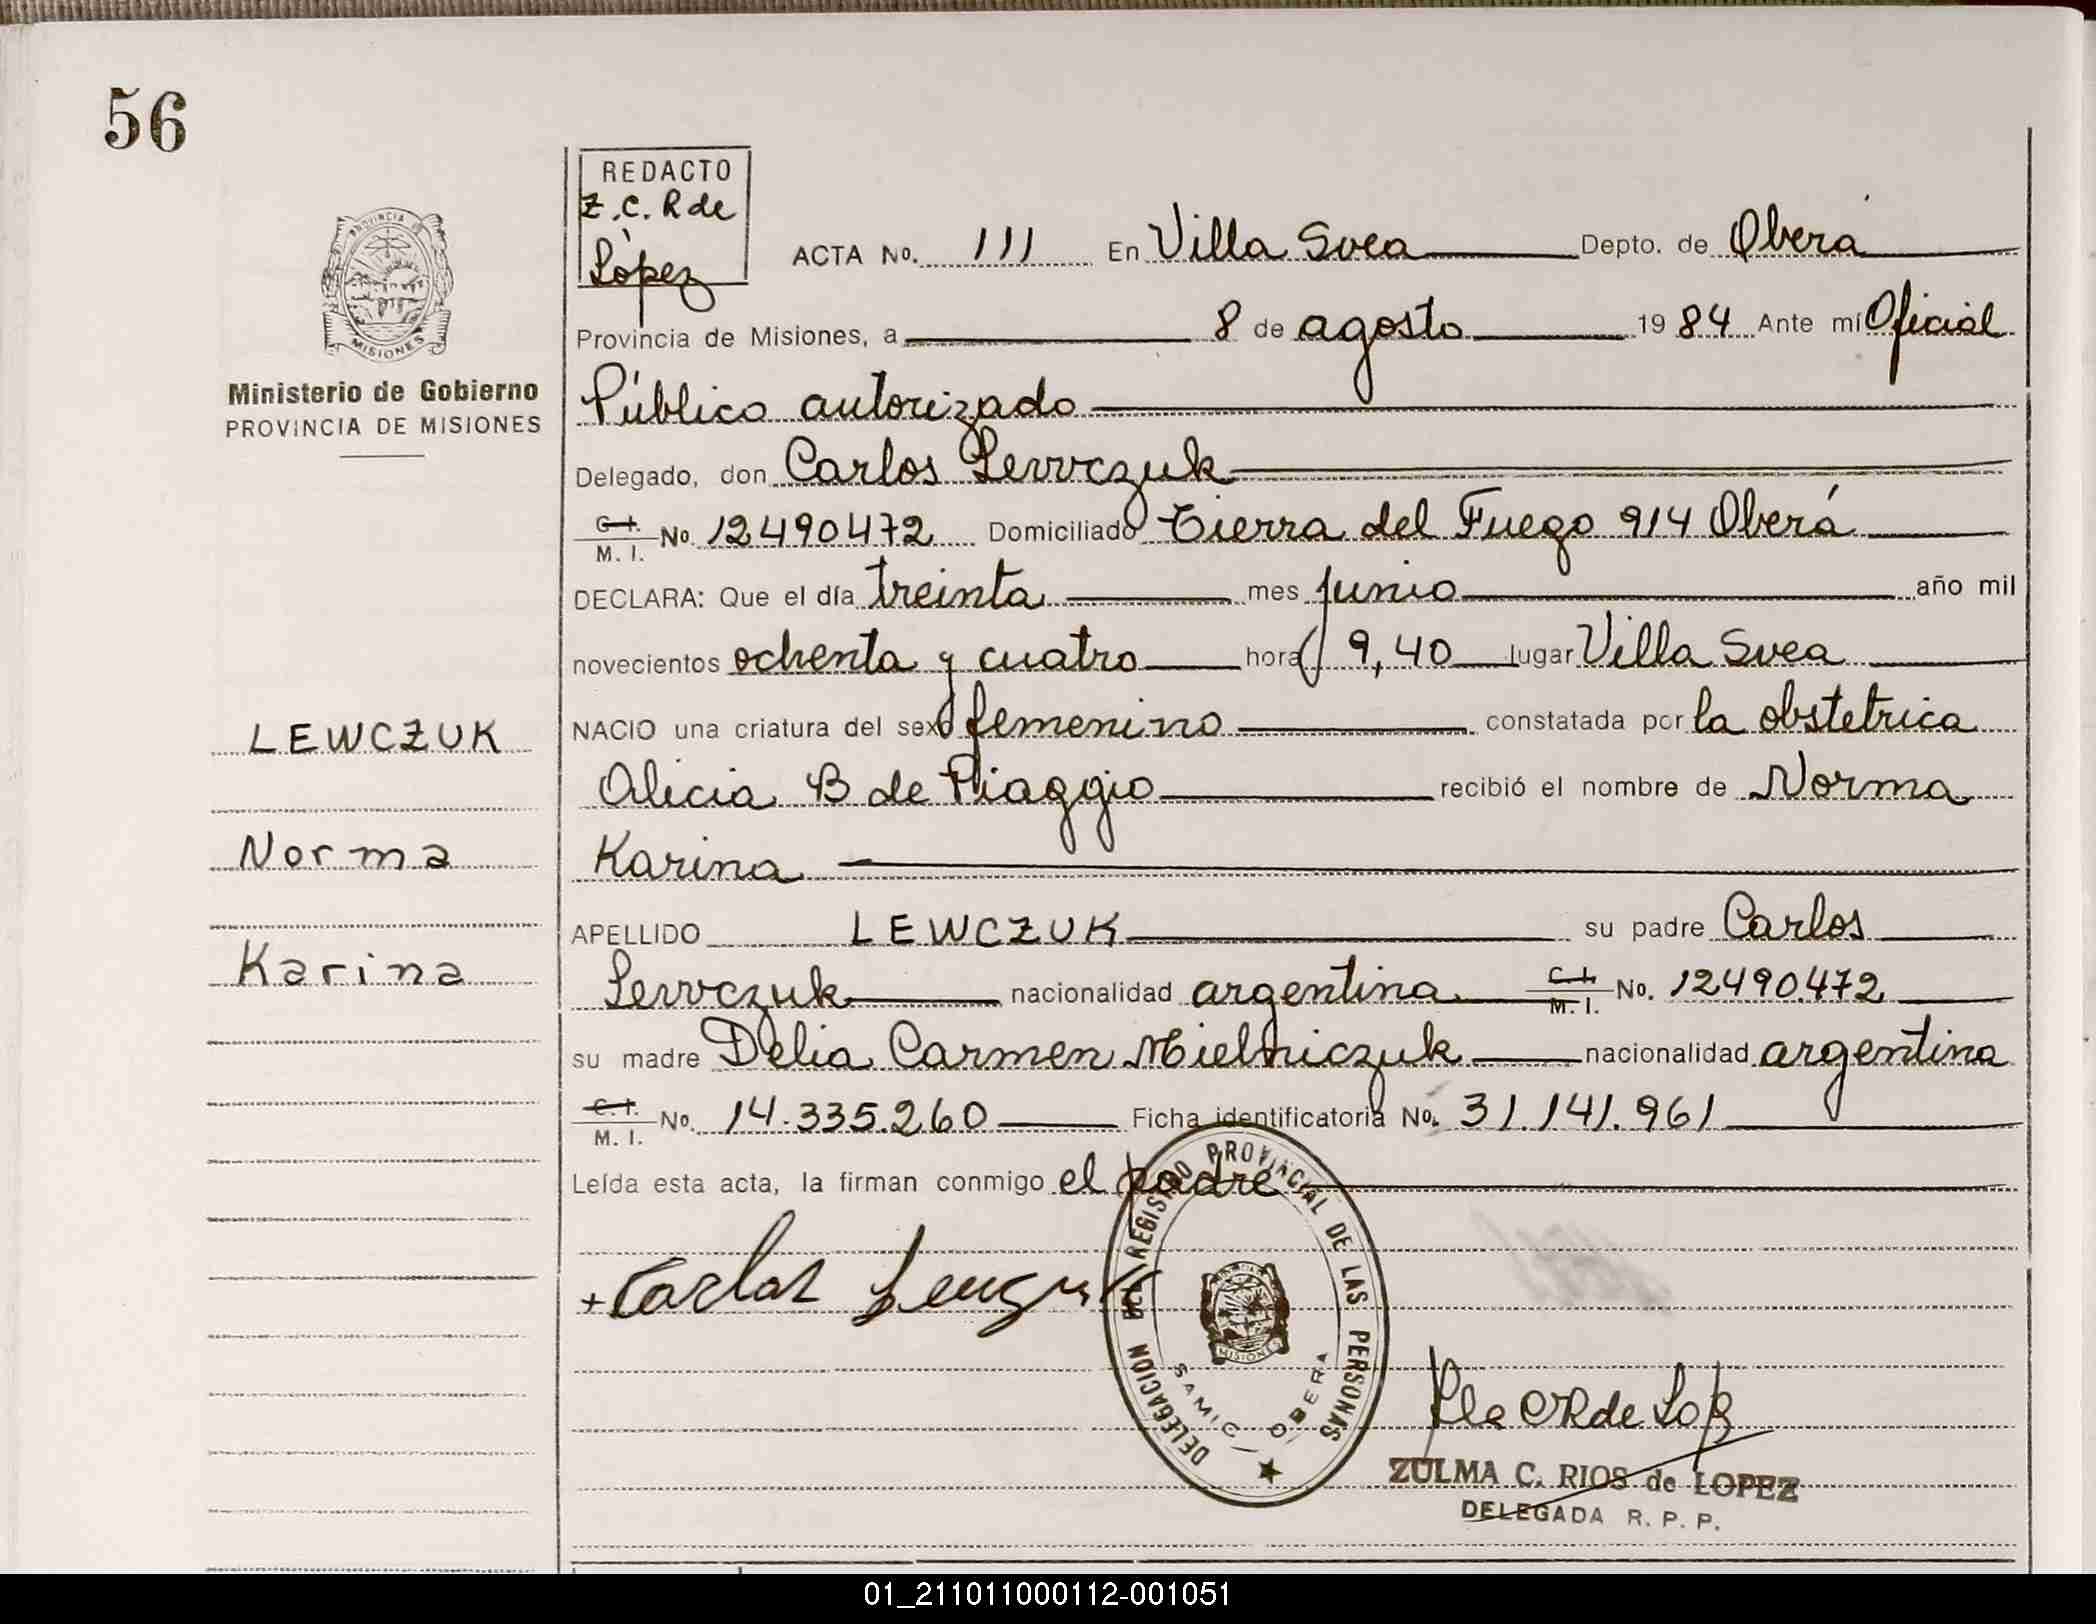 56
REDACTO
Z.C. R de
López
PROVINCIA DE
MISIONES
Ministerio de Gobierno
PROVINCIA DE MISIONES
ACTA No. 111 En Villa Svea Depto. de Oberá
Provincia de Misiones, a 8 de agosto 1984 Ante mí Oficial
Público autorizado
Delegado, don Carlos Lewczuk
C.I. M. I. No. 12490472 Domiciliado Tierra del Fuego 914 Oberá
DECLARA: Que el día treinta mes junio año mil
novecientos ochenta y cuatro hora 9,40 lugar Villa Svea
NACIO una criatura del sexo femenino constatada por la obstetrica
Alicia B de Piaggio recibió el nombre de Norma
Karina
LEWCZUK
Norma
Karina
APELLIDO LEWCZUK su padre Carlos
Lewczuk nacionalidad argentina C.I. M. I. No. 12490.472
su madre Delia Carmen Mielniczuk nacionalidad argentina
C.I. M. I. No. 14.335.260 Ficha identificatoria No. 31.141.961
Leída esta acta, la firman conmigo el padre
+ Carlos
DELEGACION DEL REGISTRO PROVINCIAL DE LAS PERSONAS
MISIONES
SAMIC OBERA
ZULMA C. RIOS de LOPEZ
DELEGADA R. P. P.
01_211011000112-001051